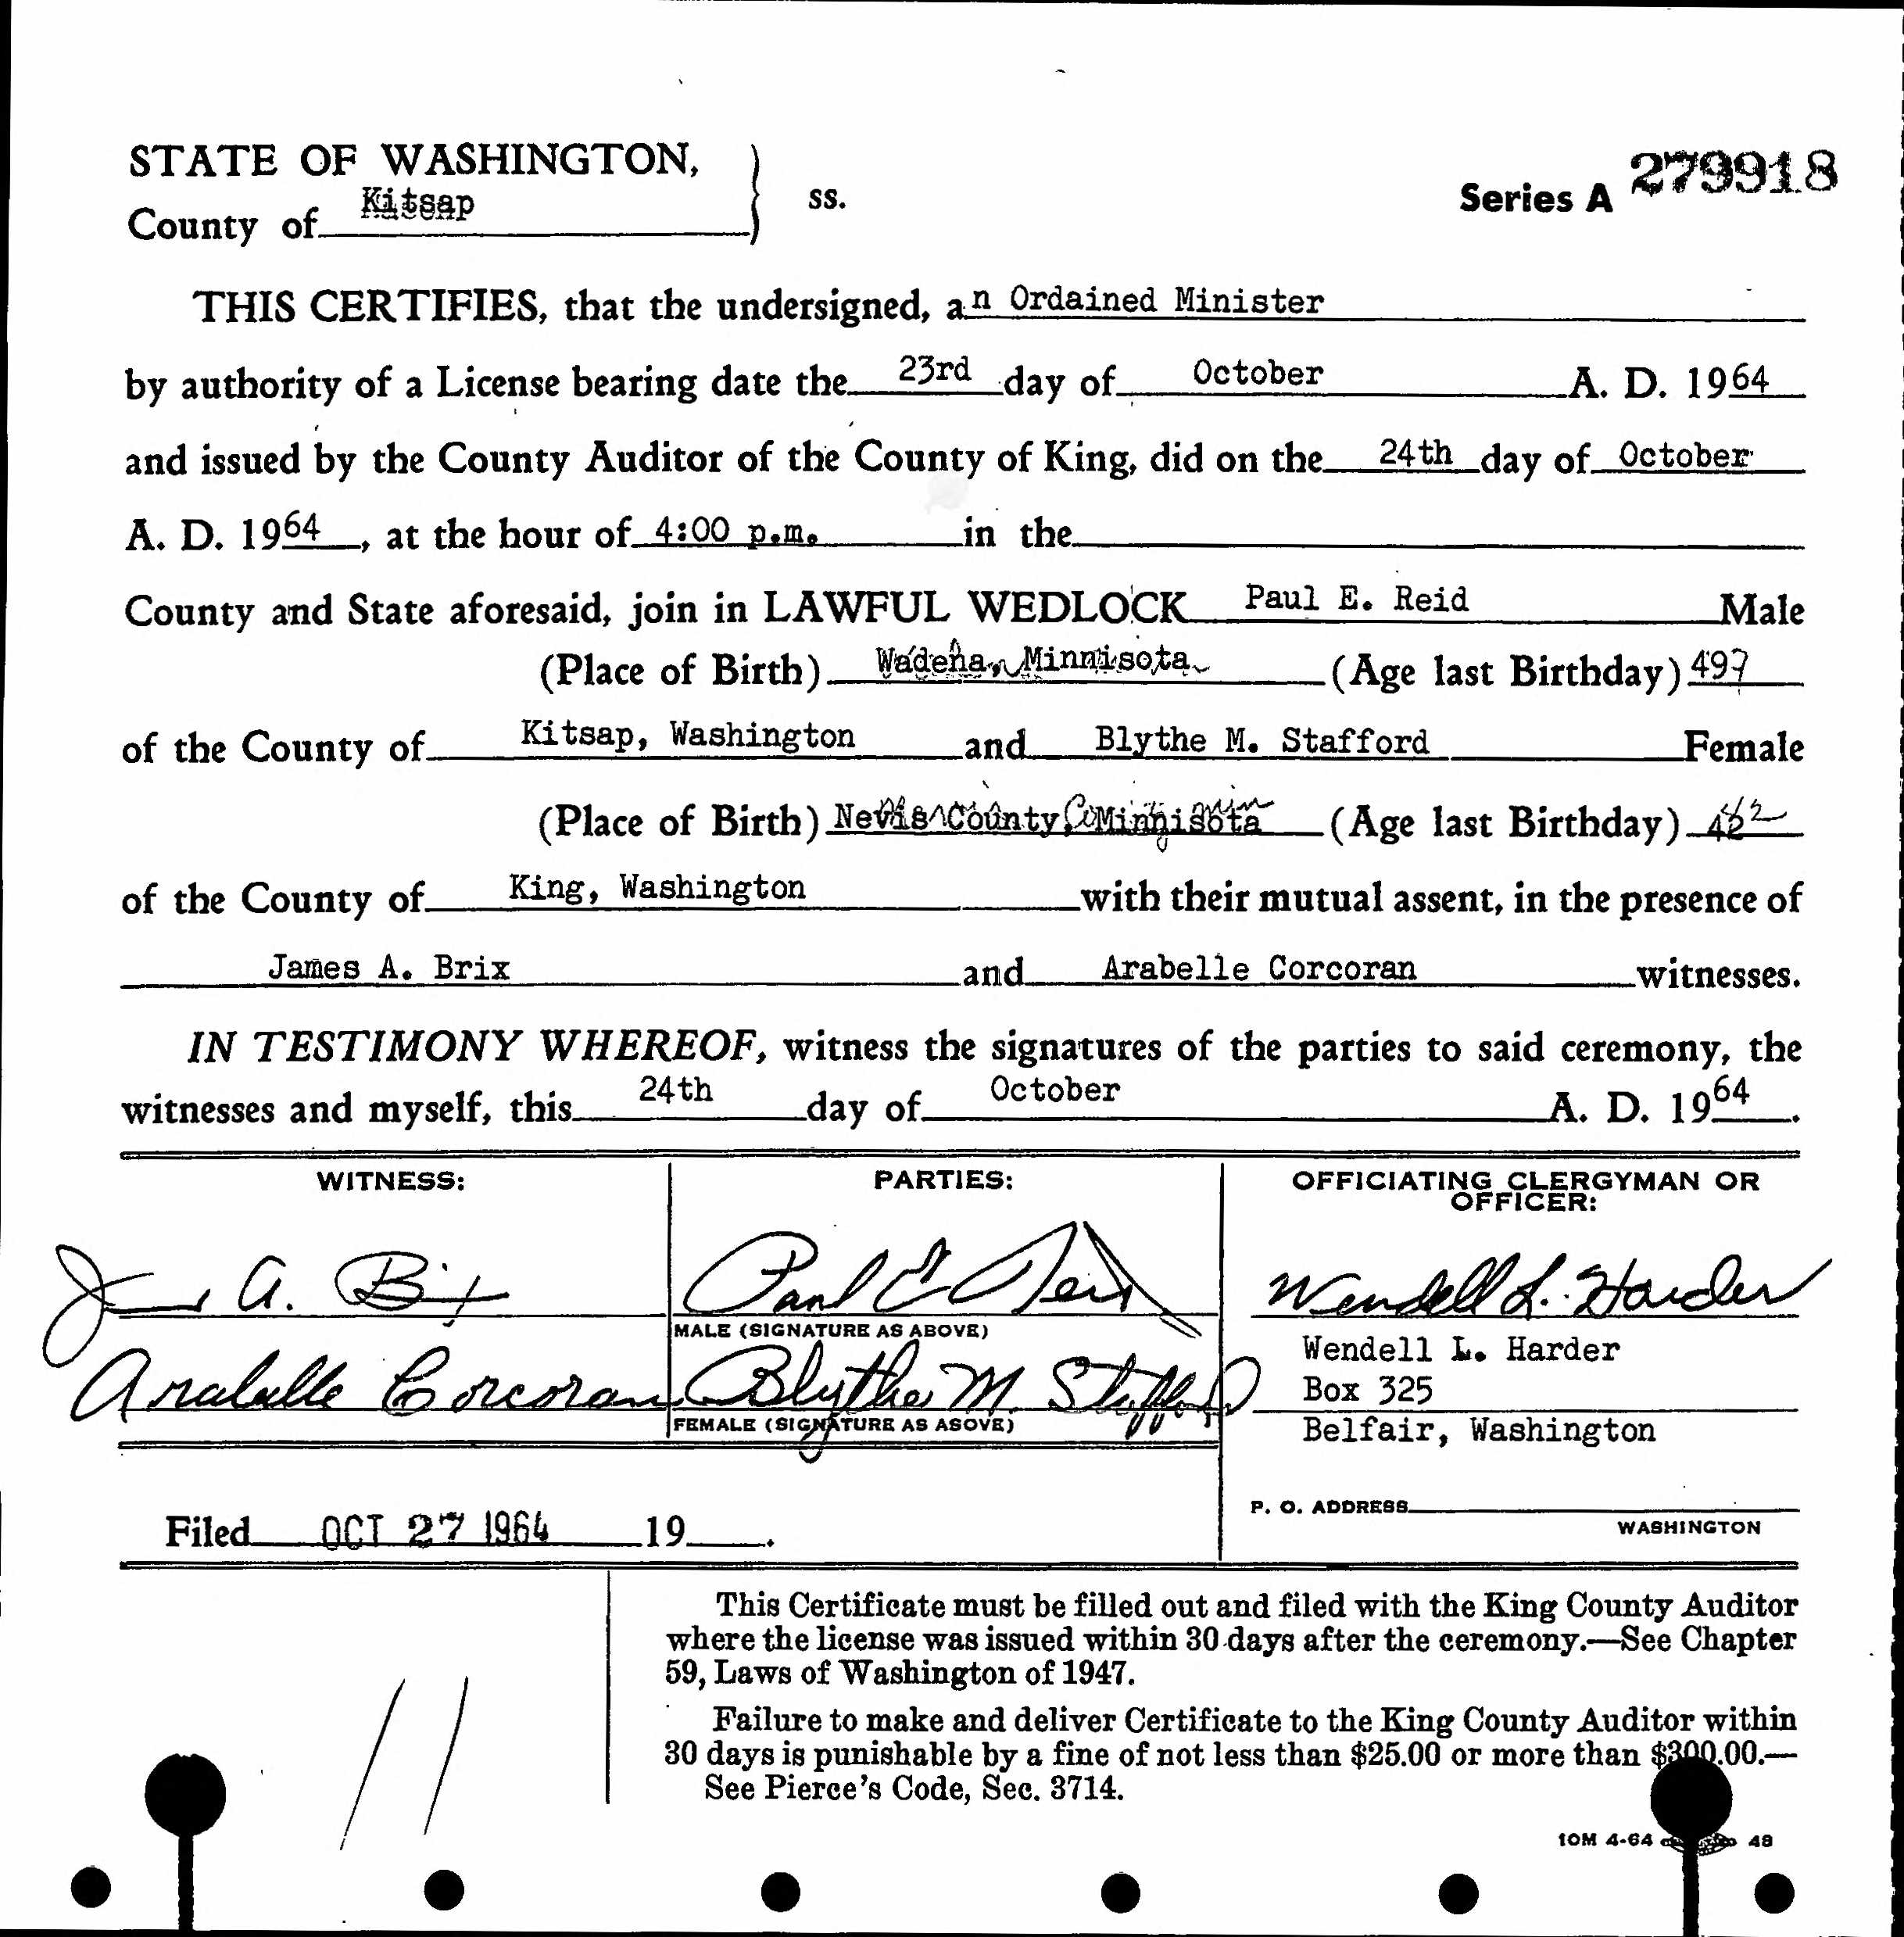 STATE OF WASHINGTON,
County of Kitsap ss.
Series A 279918
THIS CERTIFIES, that the undersigned, an Ordained Minister
by authority of a License bearing date the 23rd day of October A. D. 1964
and issued by the County Auditor of the County of King, did on the 24th day of October
A. D. 1964, at the hour of 4:00 p.m. in the
County and State aforesaid, join in LAWFUL WEDLOCK Paul E. Reid Male
(Place of Birth) Wadena, Minnisota (Age last Birthday) 49
of the County of Kitsap, Washington and Blythe M. Stafford Female
(Place of Birth) Nevis County, Minnisota (Age last Birthday) 42
of the County of King, Washington with their mutual assent, in the presence of
James A. Brix and Arabelle Corcoran witnesses.
IN TESTIMONY WHEREOF, witness the signatures of the parties to said ceremony, the
witnesses and myself, this 24th day of October A. D. 1964.
WITNESS: PARTIES: OFFICIATING CLERGYMAN OR
OFFICER:
James A. Brix Paul E Reid Wendell L. Harder
MALE (SIGNATURE AS ABOVE)
Wendell L. Harder
Arabelle Corcoran Blythe M. Stafford Box 325
FEMALE (SIGNATURE AS ABOVE) Belfair, Washington
P. O. ADDRESS
WASHINGTON
Filed OCT 27 1964 19 .
This Certificate must be filled out and filed with the King County Auditor
where the license was issued within 30 days after the ceremony.—See Chapter
59, Laws of Washington of 1947.
Failure to make and deliver Certificate to the King County Auditor within
30 days is punishable by a fine of not less than $25.00 or more than $300.00.—
See Pierce's Code, Sec. 3714.
11
10M 4-64 48